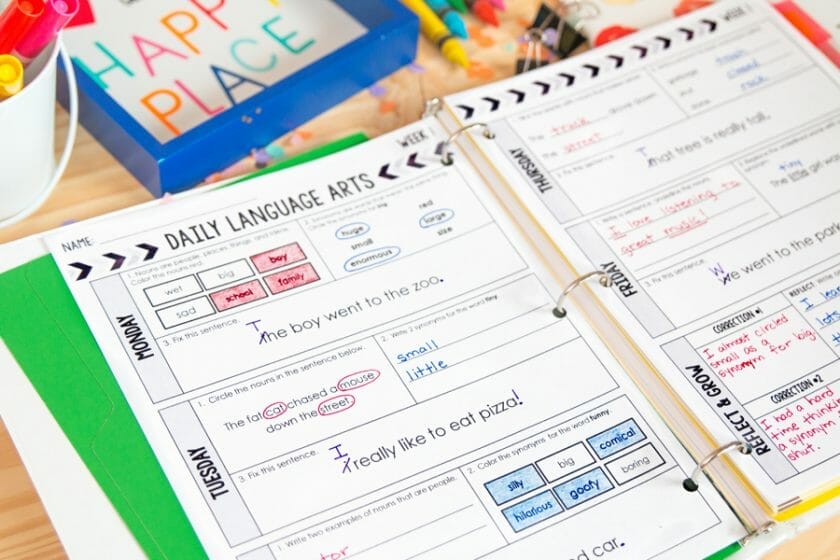 HAPPY
PLACE
NAME:
DAILY LANGUAGE ARTS
WEEK 1
MONDAY
1. Nouns are people, places, things, and ideas.
Color the nouns red.
wet big boy
sad school family
2. Synonyms are words that mean the same thing.
Circle the synonyms for
huge red
small large
enormous size
3. Fix this sentence.
The boy went to the zoo.
TUESDAY
1. Circle the nouns in the sentence below.
The fat cat chased a mouse
down the street.
2. Write 2 synonyms for the word tiny.
small
little
3. Fix this sentence.
I really like to eat pizza!
1. Write two examples of nouns that are people.
tor
2. Color the synonyms for the word funny.
silly big comical
hilarious goofy boring
d car.
WEEK 1
THURSDAY
the truck drove down
the street.
3. Fix this sentence.
That tree is really tall.
FRIDAY
I love listening to
great music!
tiny
The little girl
3. Fix this sentence.
We went to the park
REFLECT & GROW
CORRECTION #1
I almost circled
small as a
synonym for big.
REFLECT
I lear
lots
CORRECTION #2
I had a hard
time thinking
a synonym
shut.